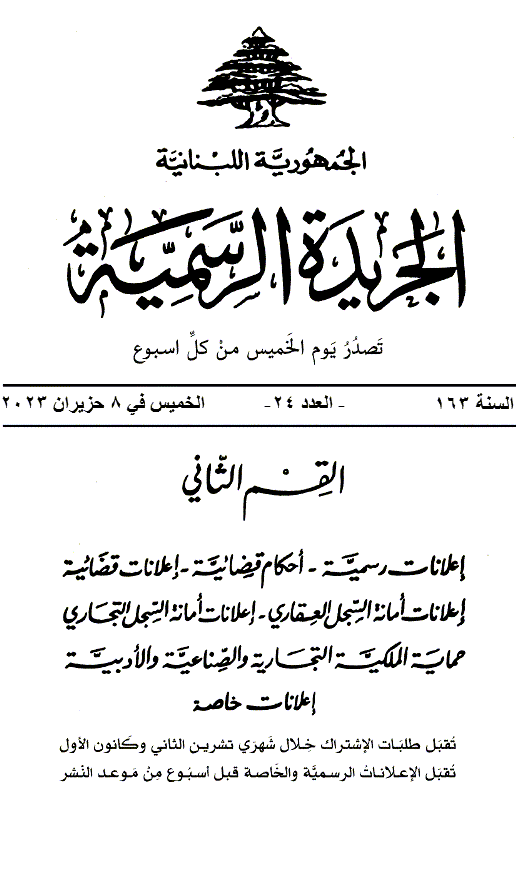 الجُمهُوريَّة اللبْنانيَّة
الجَريدَة الرسَّمِيَّة
تَصدُرُ يَوم الخَميس منْ كلِّ اسبوع
السنة ١٦٣ - العدد ٢٤- الخميس في ٨ حزيران ٢٠٢٣
القِسْم الثّاني
إعلانات رسميَّة - أحكام قضائيَّة - إعلانات قضائية
إعلانات أمانة السِّجل العقاري - إعلانات أمانة السِّجل التجاري
حماية الملكيَّة التجارية والصِّناعيَّة والأدبيَّة
إعلانات خاصة
تُقبَل طلبَات الإشتراك خِلال شَهرَي تشرين الثاني وكَانون الأول
تُقبَل الإعلاناتُ الرسميَّة والخَاصة قبل أسبُوع مِنْ مَوعد النَشر